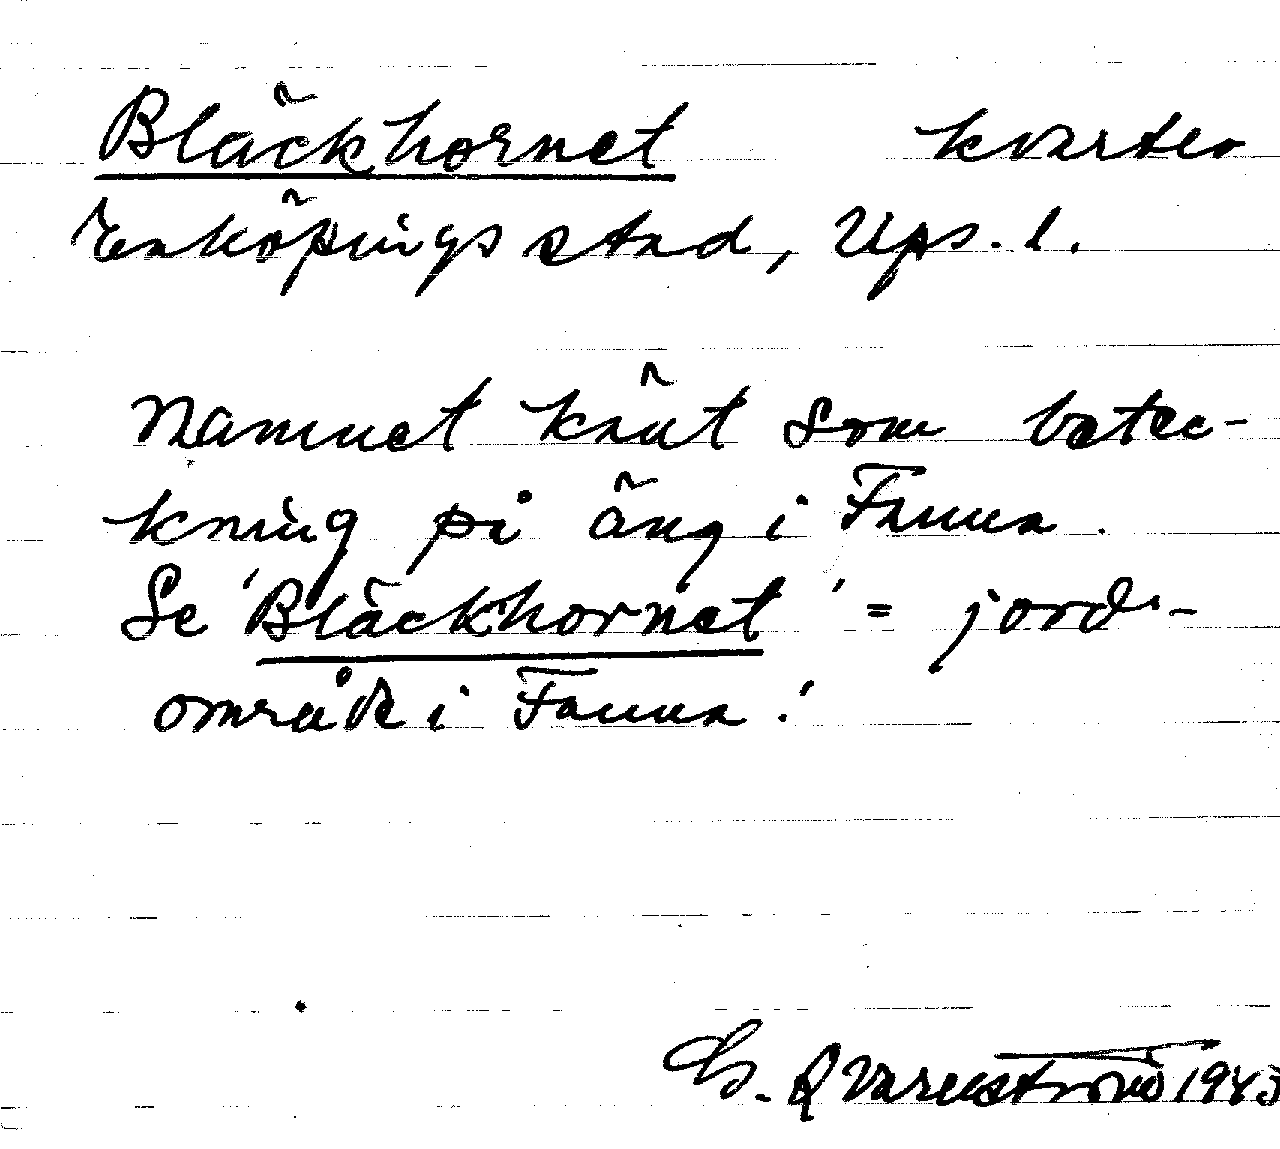 Bläckhornet kvarter
Enköpings stad, Ups. l.
Namnet känt som beteck-
kning på äng i Fanna.
Se 'Bläckhornet' = jord-
område i Fanna.'
G. Qvarnström 1943